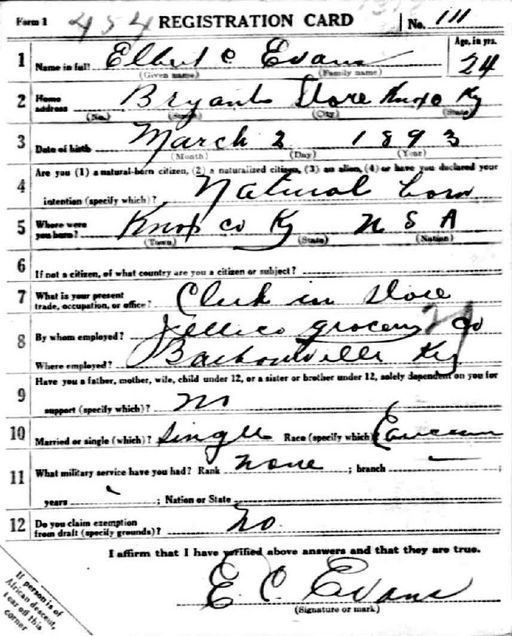 Form 1 454 REGISTRATION CARD No. 111
1 Name in full Elbert C Evans Age, in yrs. 24
(Given name) (Family name)
2 Home address Bryants Store Knox Ky
(No.) (Street) (City) (State)
3 Date of birth March 2 1893
(Month) (Day) (Year)
Are you (1) a natural-born citizen, (2) a naturalized citizen, (3) an alien, (4) or have you declared your
4 intention (specify which)? Natural born
5 Where were you born? Knox co Ky U S A
(Town) (State) (Nation)
6 If not a citizen, of what country are you a citizen or subject?
7 What is your present trade, occupation, or office? Clerk in Store
8 By whom employed? Jellico grocery Co
Where employed? Barbourville Ky
Have you a father, mother, wife, child under 12, or a sister or brother under 12, solely dependent on you for
9 support (specify which)? no
10 Married or single (which)? Single Race (specify which)
11 What military service have you had? Rank none ; branch
years ; Nation or State
12 Do you claim exemption from draft (specify grounds)? No.
I affirm that I have verified above answers and that they are true.
E. C. Evans
(Signature or mark)
If person is of
African descent,
tear off this
corner